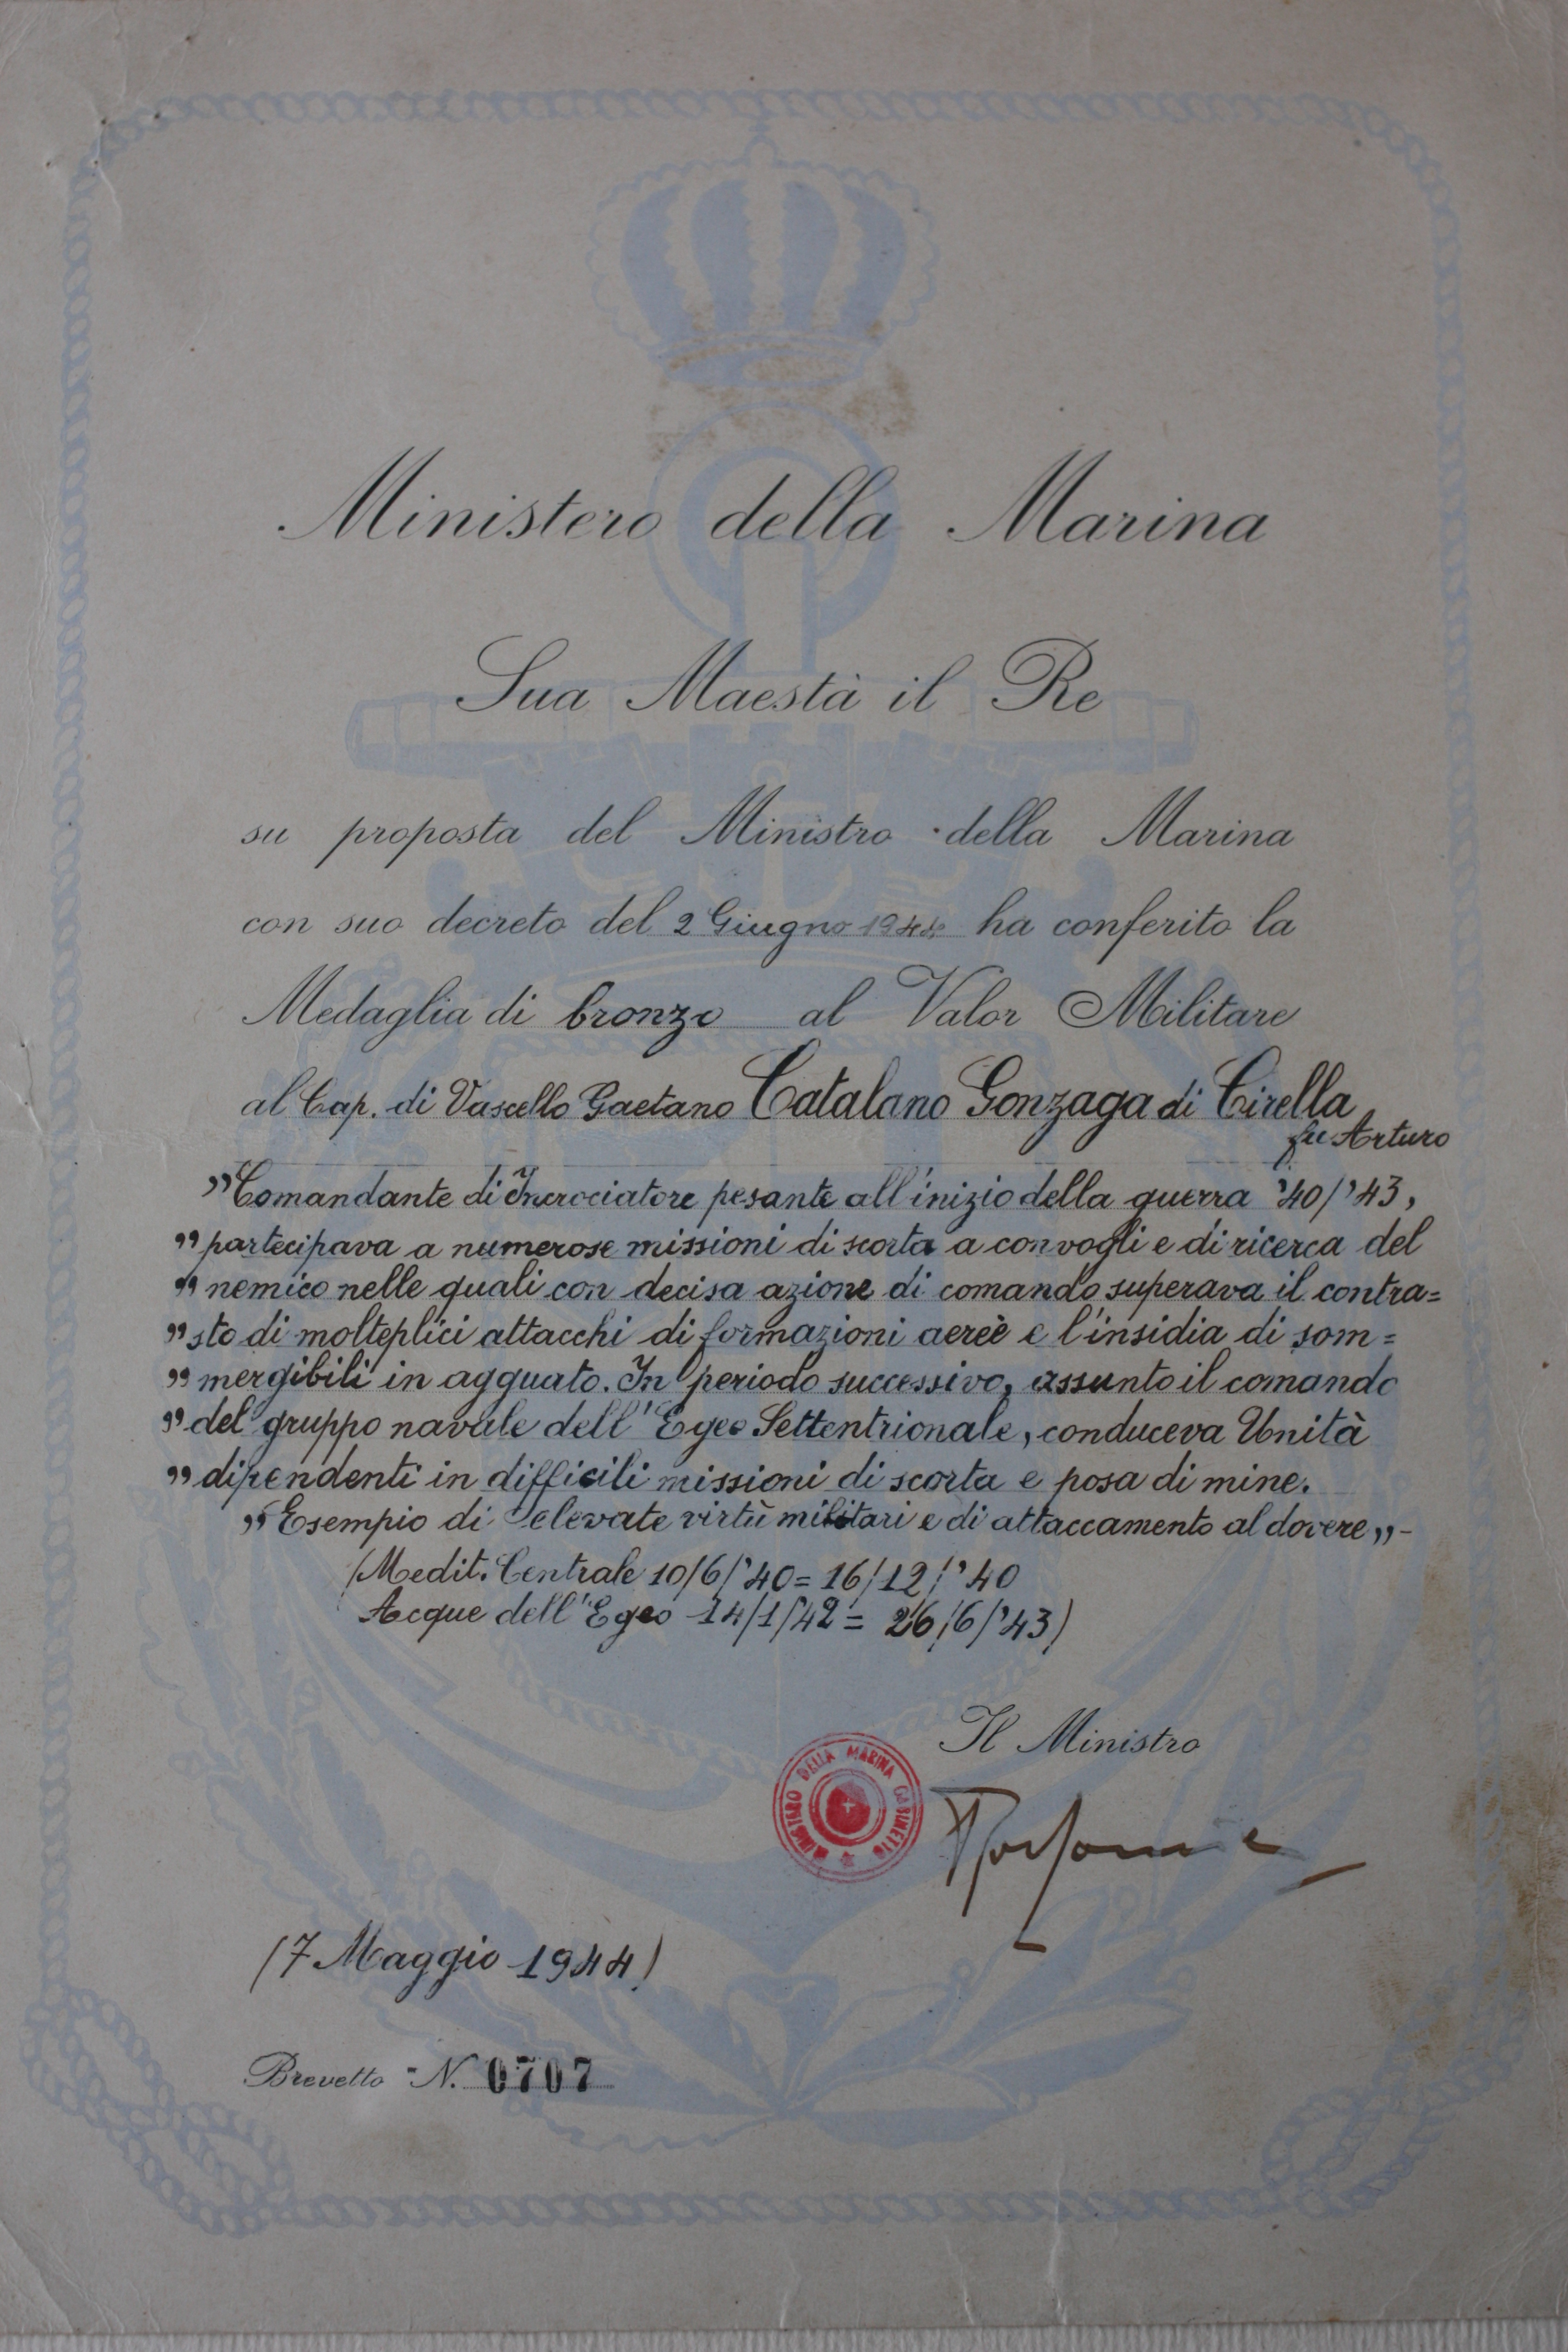 Ministero della Marina
Sua Maestà il Re
su proposta del Ministro della Marina
con suo decreto del 2 Giugno 1944 ha conferito la
Medaglia di bronzo al Valor Militare
al Cap. di Vascello Gaetano Catalano Gonzaga di Cirella
fu Arturo
"Comandante di Incrociatore pesante all'inizio della guerra '40/'43,
"partecipava a numerose missioni di scorta a convogli e di ricerca del
"nemico nelle quali con decisa azione di comando superava il contra=
"sto di molteplici attacchi di formazioni aeree e l'insidia di som=
"mergibili in agguato. In periodo successivo, assunto il comando
"del gruppo navale dell'Egeo Settentrionale, conduceva Unità
"dipendenti in difficili missioni di scorta e posa di mine.
"Esempio di elevate virtù militari e di attaccamento al dovere„-
(Medit. Centrale 10/6/'40=16/12/'40
Acque dell'Egeo 14/1/'42= 26/6/'43)
Il Ministro
MINISTRO DELLA MARINA GABINETTO
(7 Maggio 1944)
Brevetto N. 0707